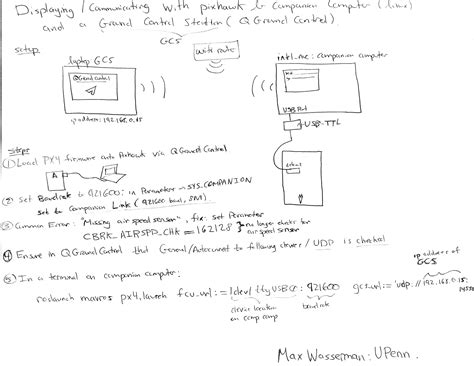 Displaying / Communicating with pixhawk & Companion Computer (linux)
and a Ground Control Station (QGround Control).
GCS
setup
laptop GCS
QGround Control
ip address: 192.168.0.15
wifi route
intel nuc: companion computer
USB Port
USB-TTL
steps
① Load PX4 firmware onto Pixhawk via QGround Control
② Set Baudrate to 921600: in Parameters → SYS_COMPANION
set to Companion Link (921600 baud, 8N1)
③ Common Error: "Missing airspeed sensor", fix: set Parameter
CBRK_AIRSPD_CHK = 162128 } no longer checks for
airspeed sensor
④ Ensure in QGround Control that General/Autoconnect to following devices / UDP is checked
⑤ In a terminal on companion computer:
ip address of
GCS
roslaunch mavros px4.launch fcu_url:=/dev/ttyUSB0:921600 gcs_url:='udp://@192.168.0.15:14550
device location
on comp comp
baudrate
Max Wasserman: UPenn.